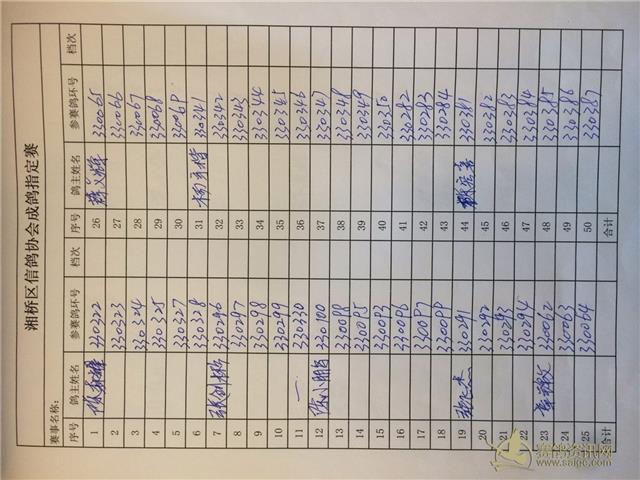 湘桥区信鸽协会成鸽指定赛
赛事名称：
序号 鸽主姓名 参赛鸽环号 档次 序号 鸽主姓名 参赛鸽环号 档次
1 330322 26 330065
2 330323 27 330066
3 330324 28 330067
4 330325 29 330068
5 330327 30 330069
6 330328 31 330341
7 330296 32 330342
8 330297 33 330343
9 330298 34 330344
10 330299 35 330345
11 330330 36 330346
12 330100 37 330347
13 330098 38 330348
14 330095 39 330349
15 330093 40 330350
16 330096 41 330282
17 330097 42 330283
18 330099 43 330284
19 330291 44 330381
20 330292 45 330382
21 330293 46 330383
22 330294 47 330384
23 330062 48 330385
24 330063 49 330386
25 330064 50 330387
合计 合计
赛鸽资讯网
www.saige.com